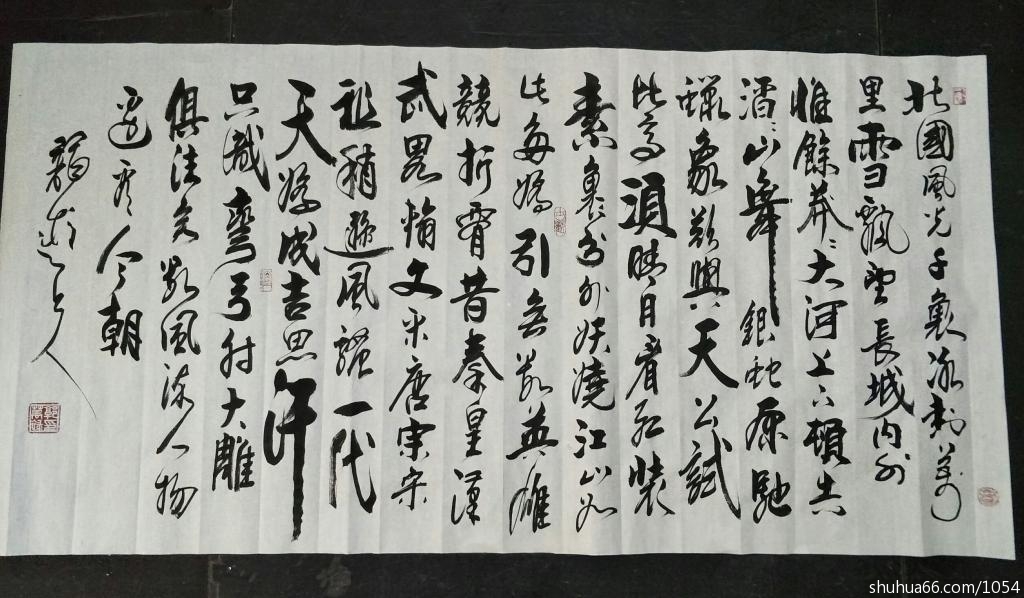 北國風光千裏冰封萬
里雪飄望長城內外
惟餘莽々大河上下頓失
滔々山舞銀蛇原馳
蠟象欲與天公試
比高須晴日看紅裝
素裹分外妖嬈江山如
此多嬌引無數英雄
競折腰昔秦皇漢
武略輸文采唐宗宋
祖稍遜風騷一代
天驕成吉思汗
只識彎弓射大雕
俱往矣數風流人物
還看今朝
shuhua66.com/1054